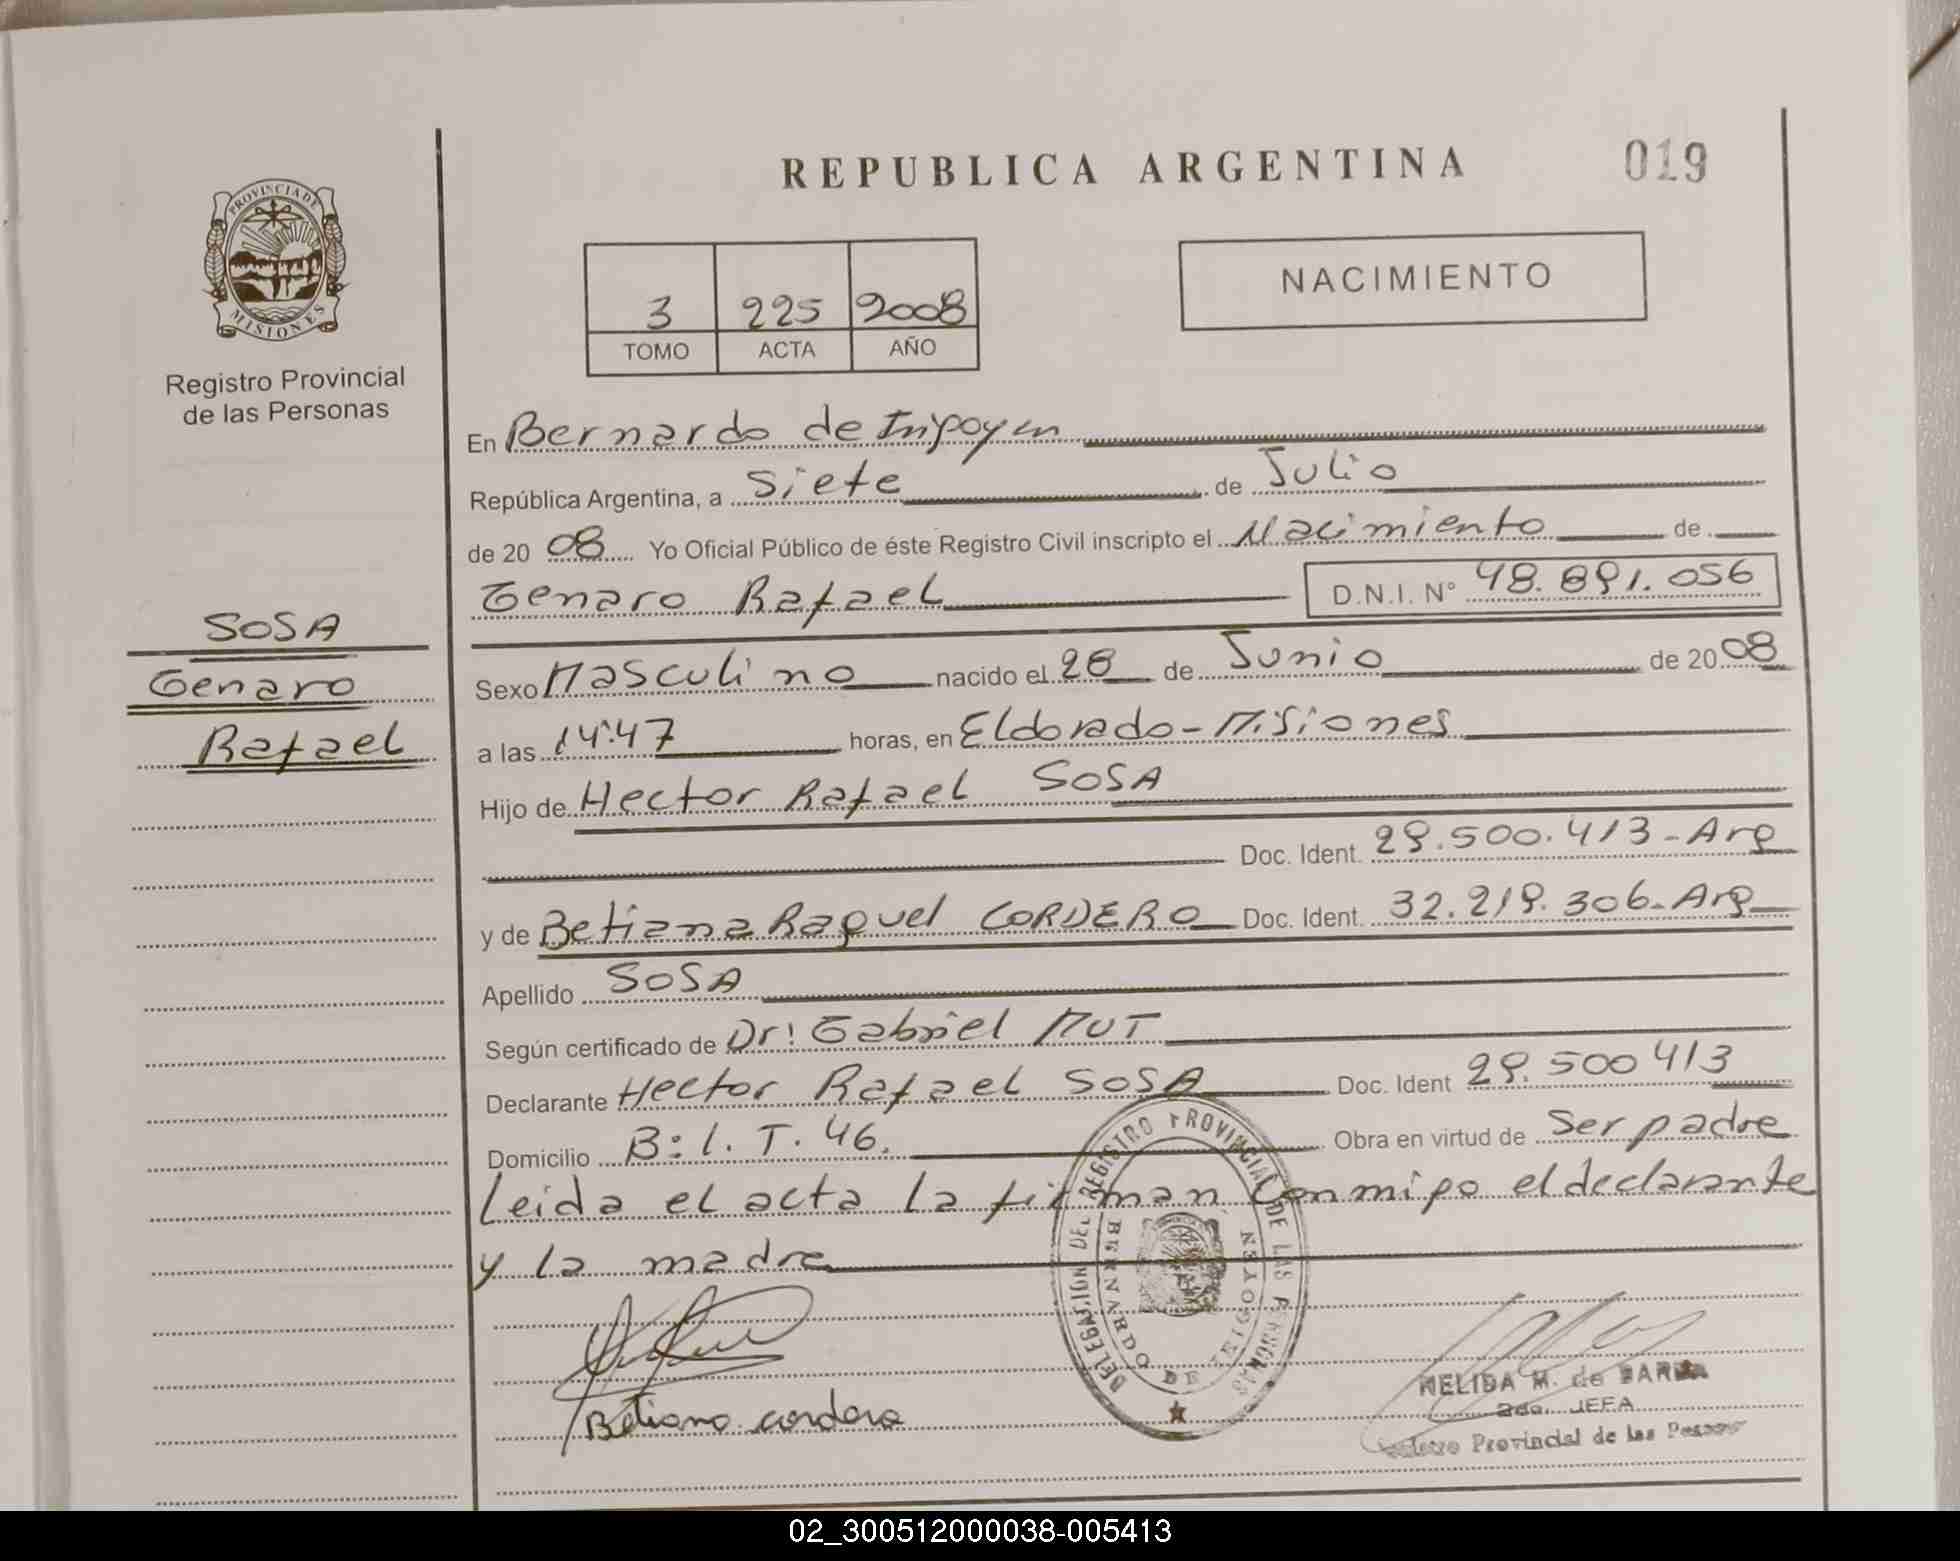 REPUBLICA ARGENTINA
019
PROVINCIA DE
MISIONES
Registro Provincial
de las Personas
3 225 2008
TOMO ACTA AÑO
NACIMIENTO
SOSA
Genaro
Rafael
En Bernardo de Irigoyen
República Argentina, a siete de Julio
de 20 08 Yo Oficial Público de éste Registro Civil inscripto el Nacimiento de
Genaro Rafael D.N.I. N° 48.891.056
Sexo Masculino nacido el 28 de Junio de 20 08
a las 14:47 horas, en Eldorado - Misiones
Hijo de Hector Rafael SOSA
Doc. Ident. 29.500.413 - Arg
y de Betiana Raquel CORDERO Doc. Ident. 32.219.306 - Arg
Apellido SOSA
Según certificado de Dr: Gabriel MUT
Declarante Hector Rafael SOSA Doc. Ident 29.500 413
Domicilio B: I. T. 46. Obra en virtud de Ser padre
Leida el acta la firman conmigo el declarante
y la madre
DELEGACION DEL REGISTRO PROVINCIAL DE LAS PERSONAS
BERNARDO DE IRIGOYEN
Betiana cordero
NELIDA M. de
2da. JEFA
Provincial de las
02_300512000038-005413